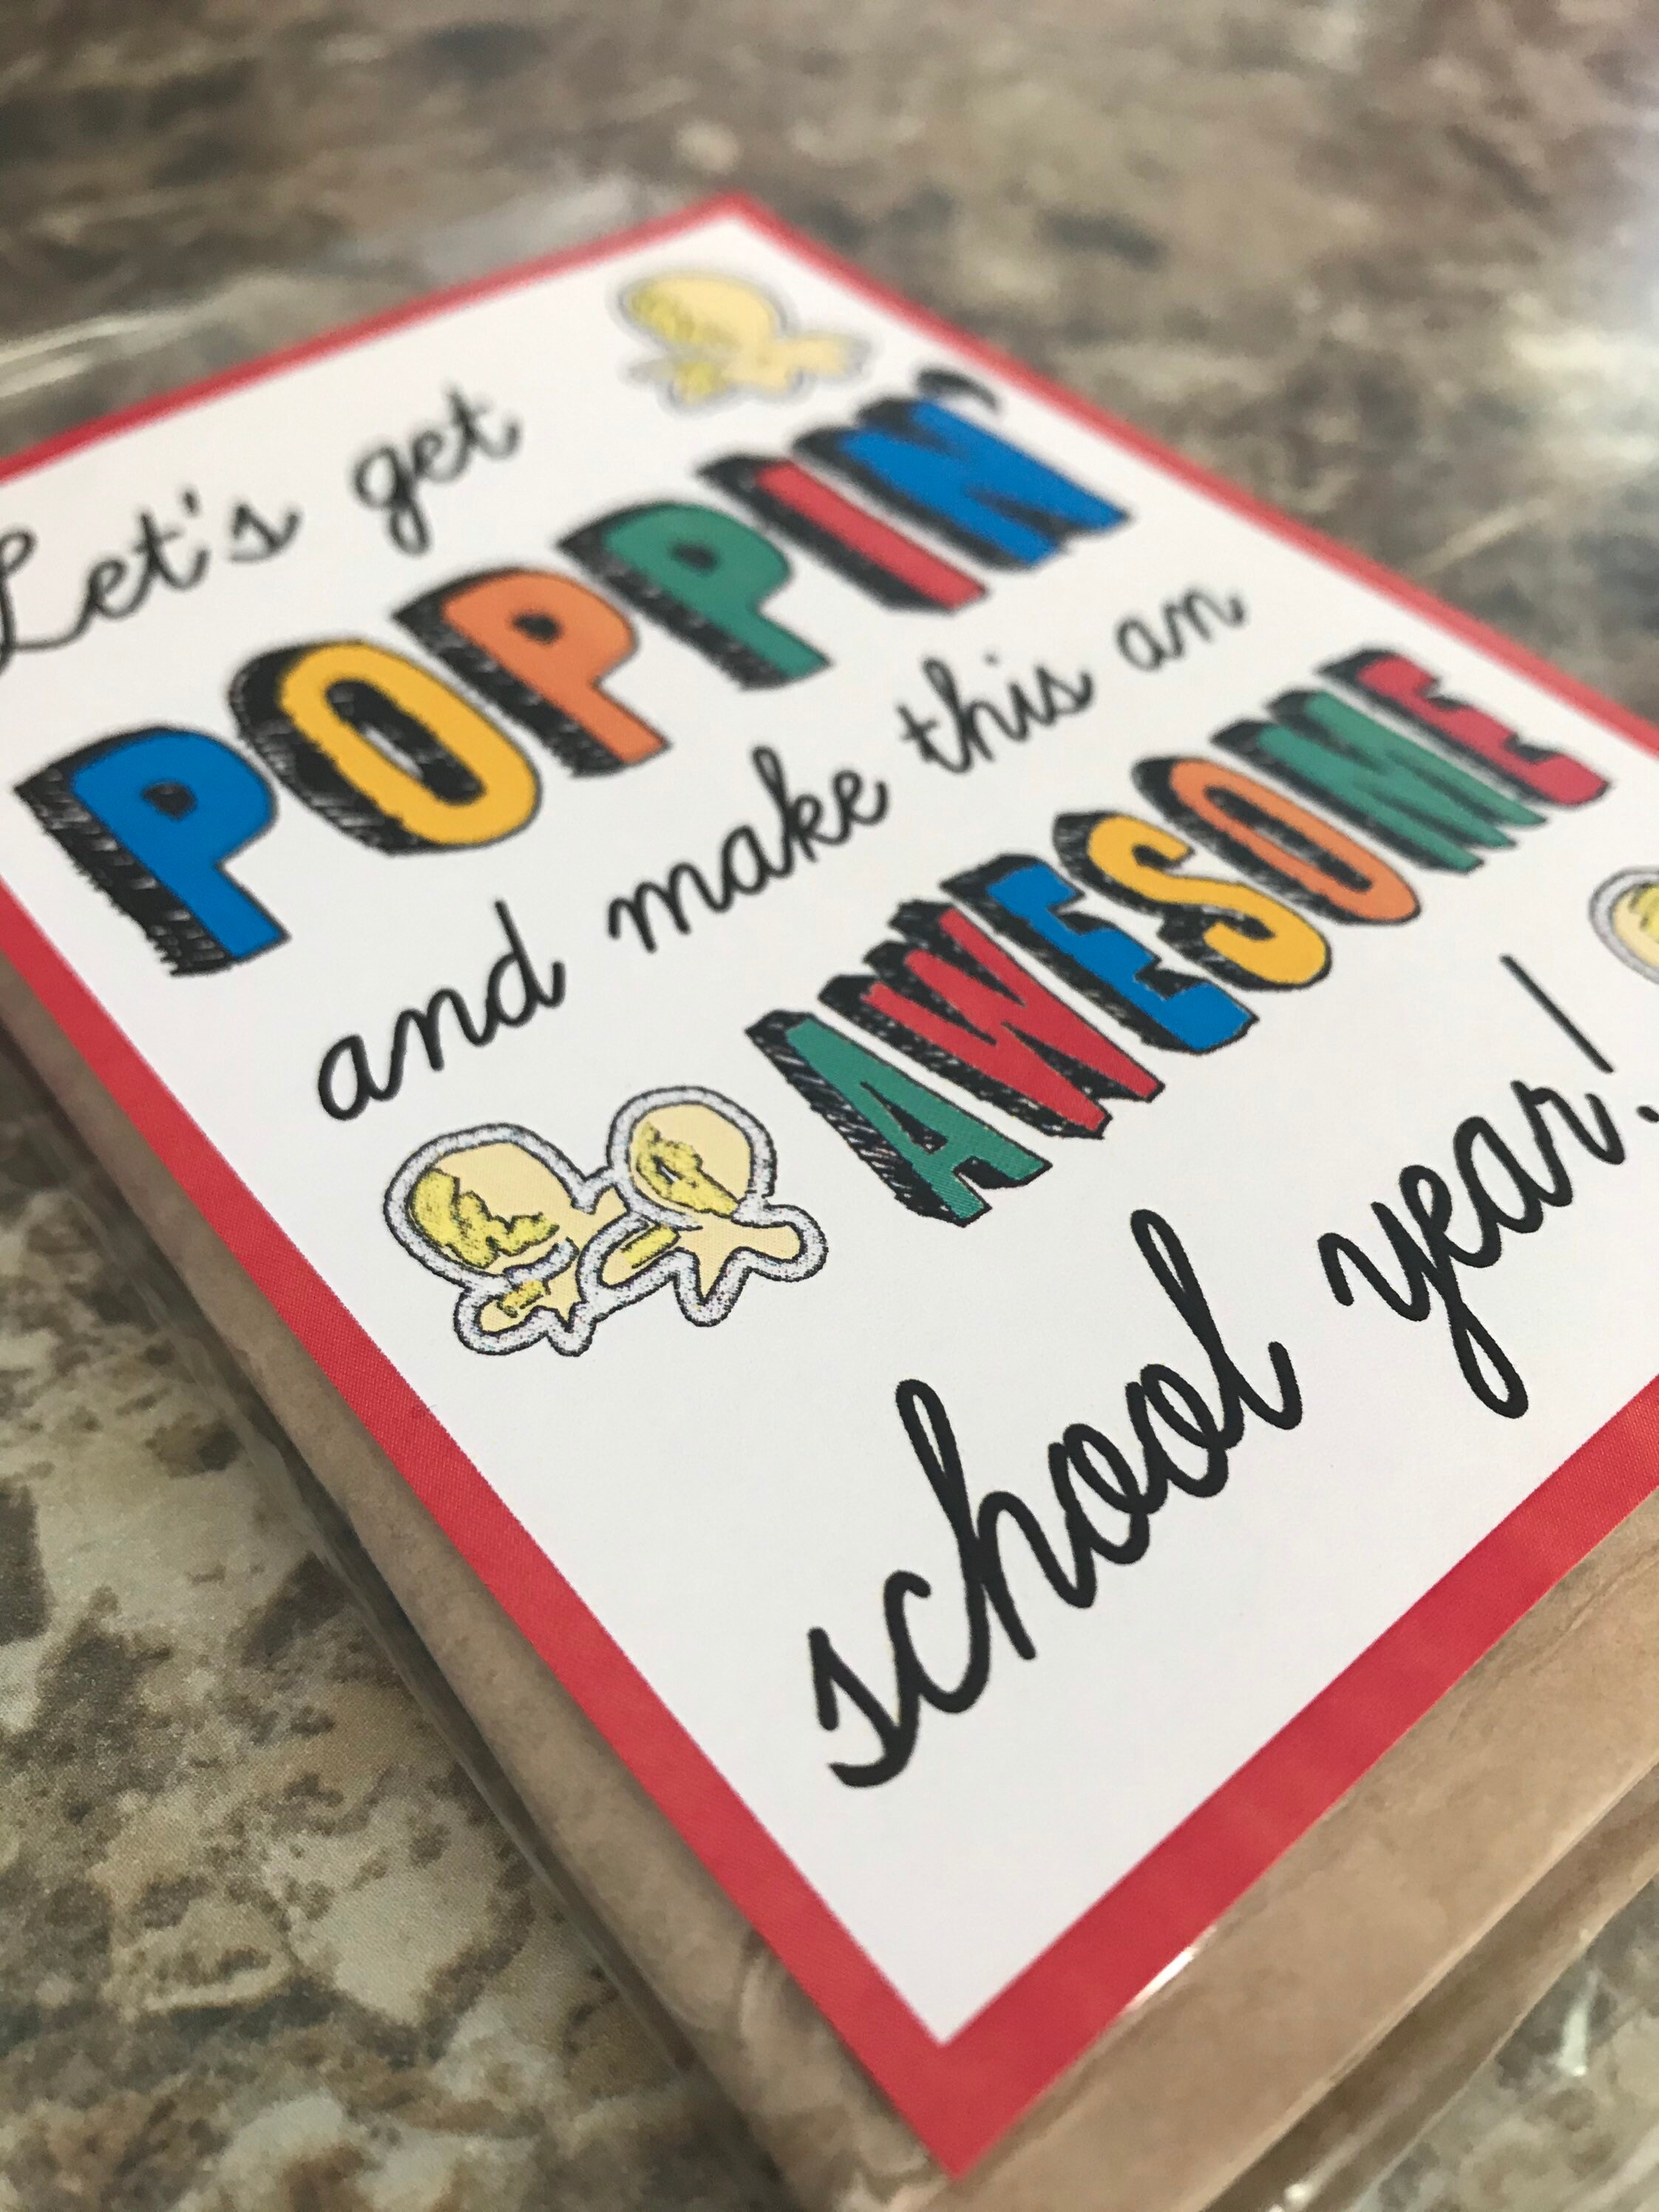 Let's get
POPPIN'
and make this an
AWESOME
school year!